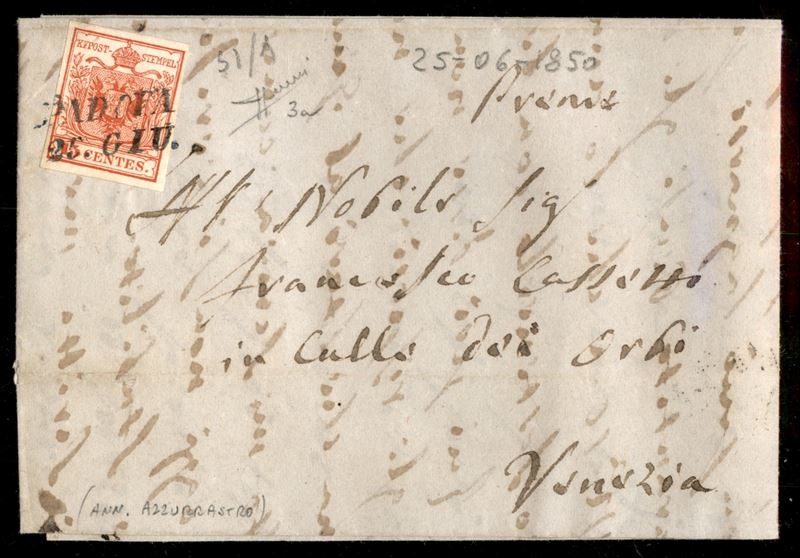 KKPOST-STEMPEL
PADOVA
25. GIU.
15 CENTES.
51/A
3a
25-06-1850
Preme
All Nobile Sig
Francesco
in Calle dei Orbi
Venezia
(ANN. AZZURRASTRO)